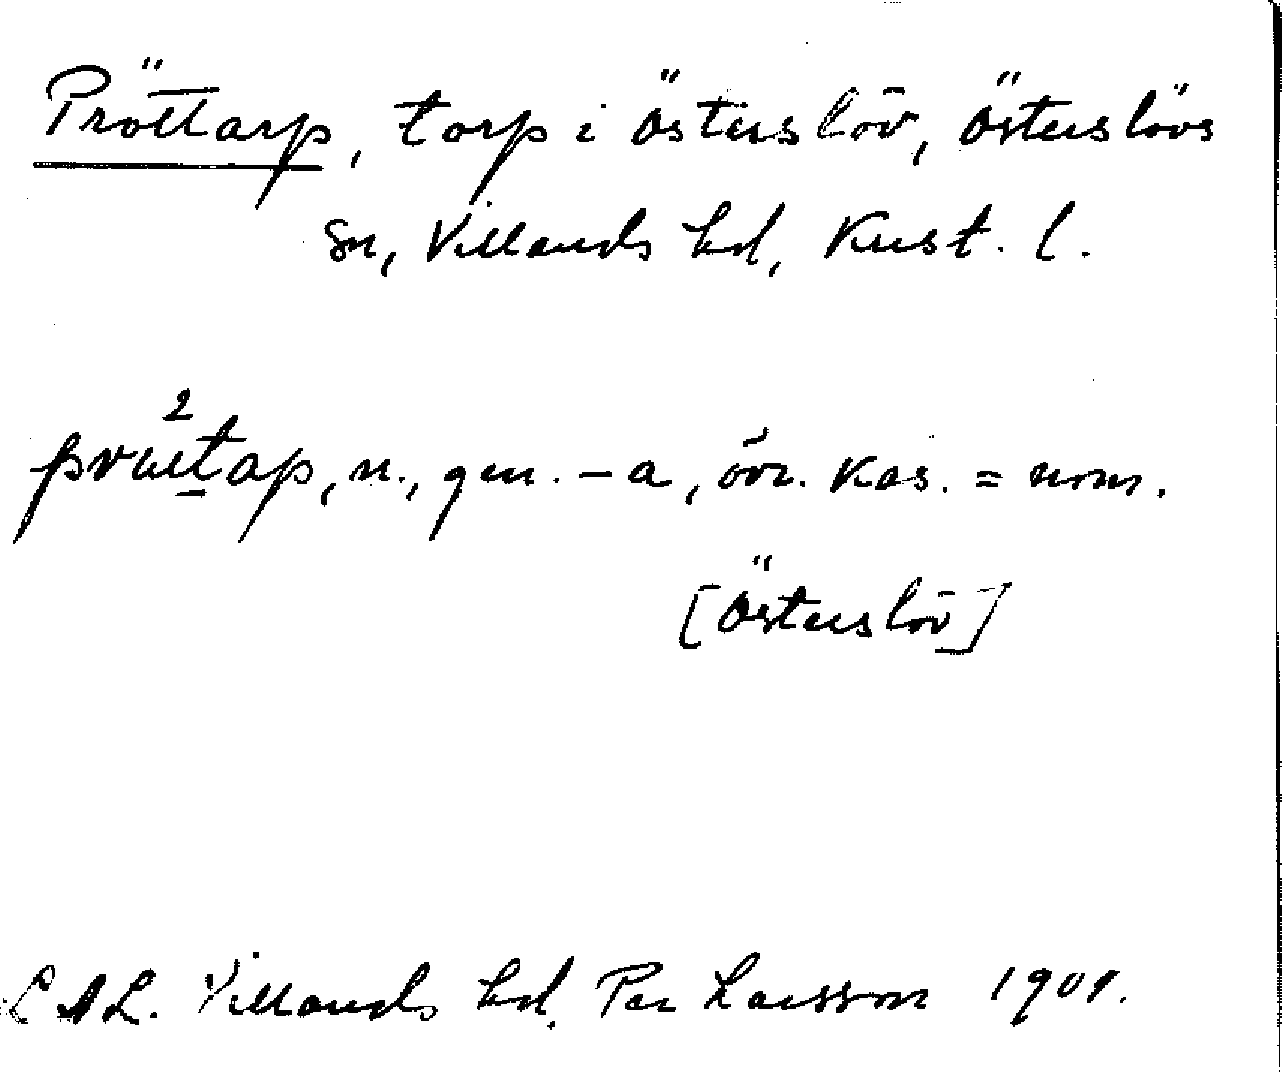 Pröttarp, torp i Österslöv, Österslövs
sn, Villands hd, Krist. l.
n., gen. -a, övr. kas. = nom.
[Österslöv]
LAL. Villands hd. Per Larsson 1901.